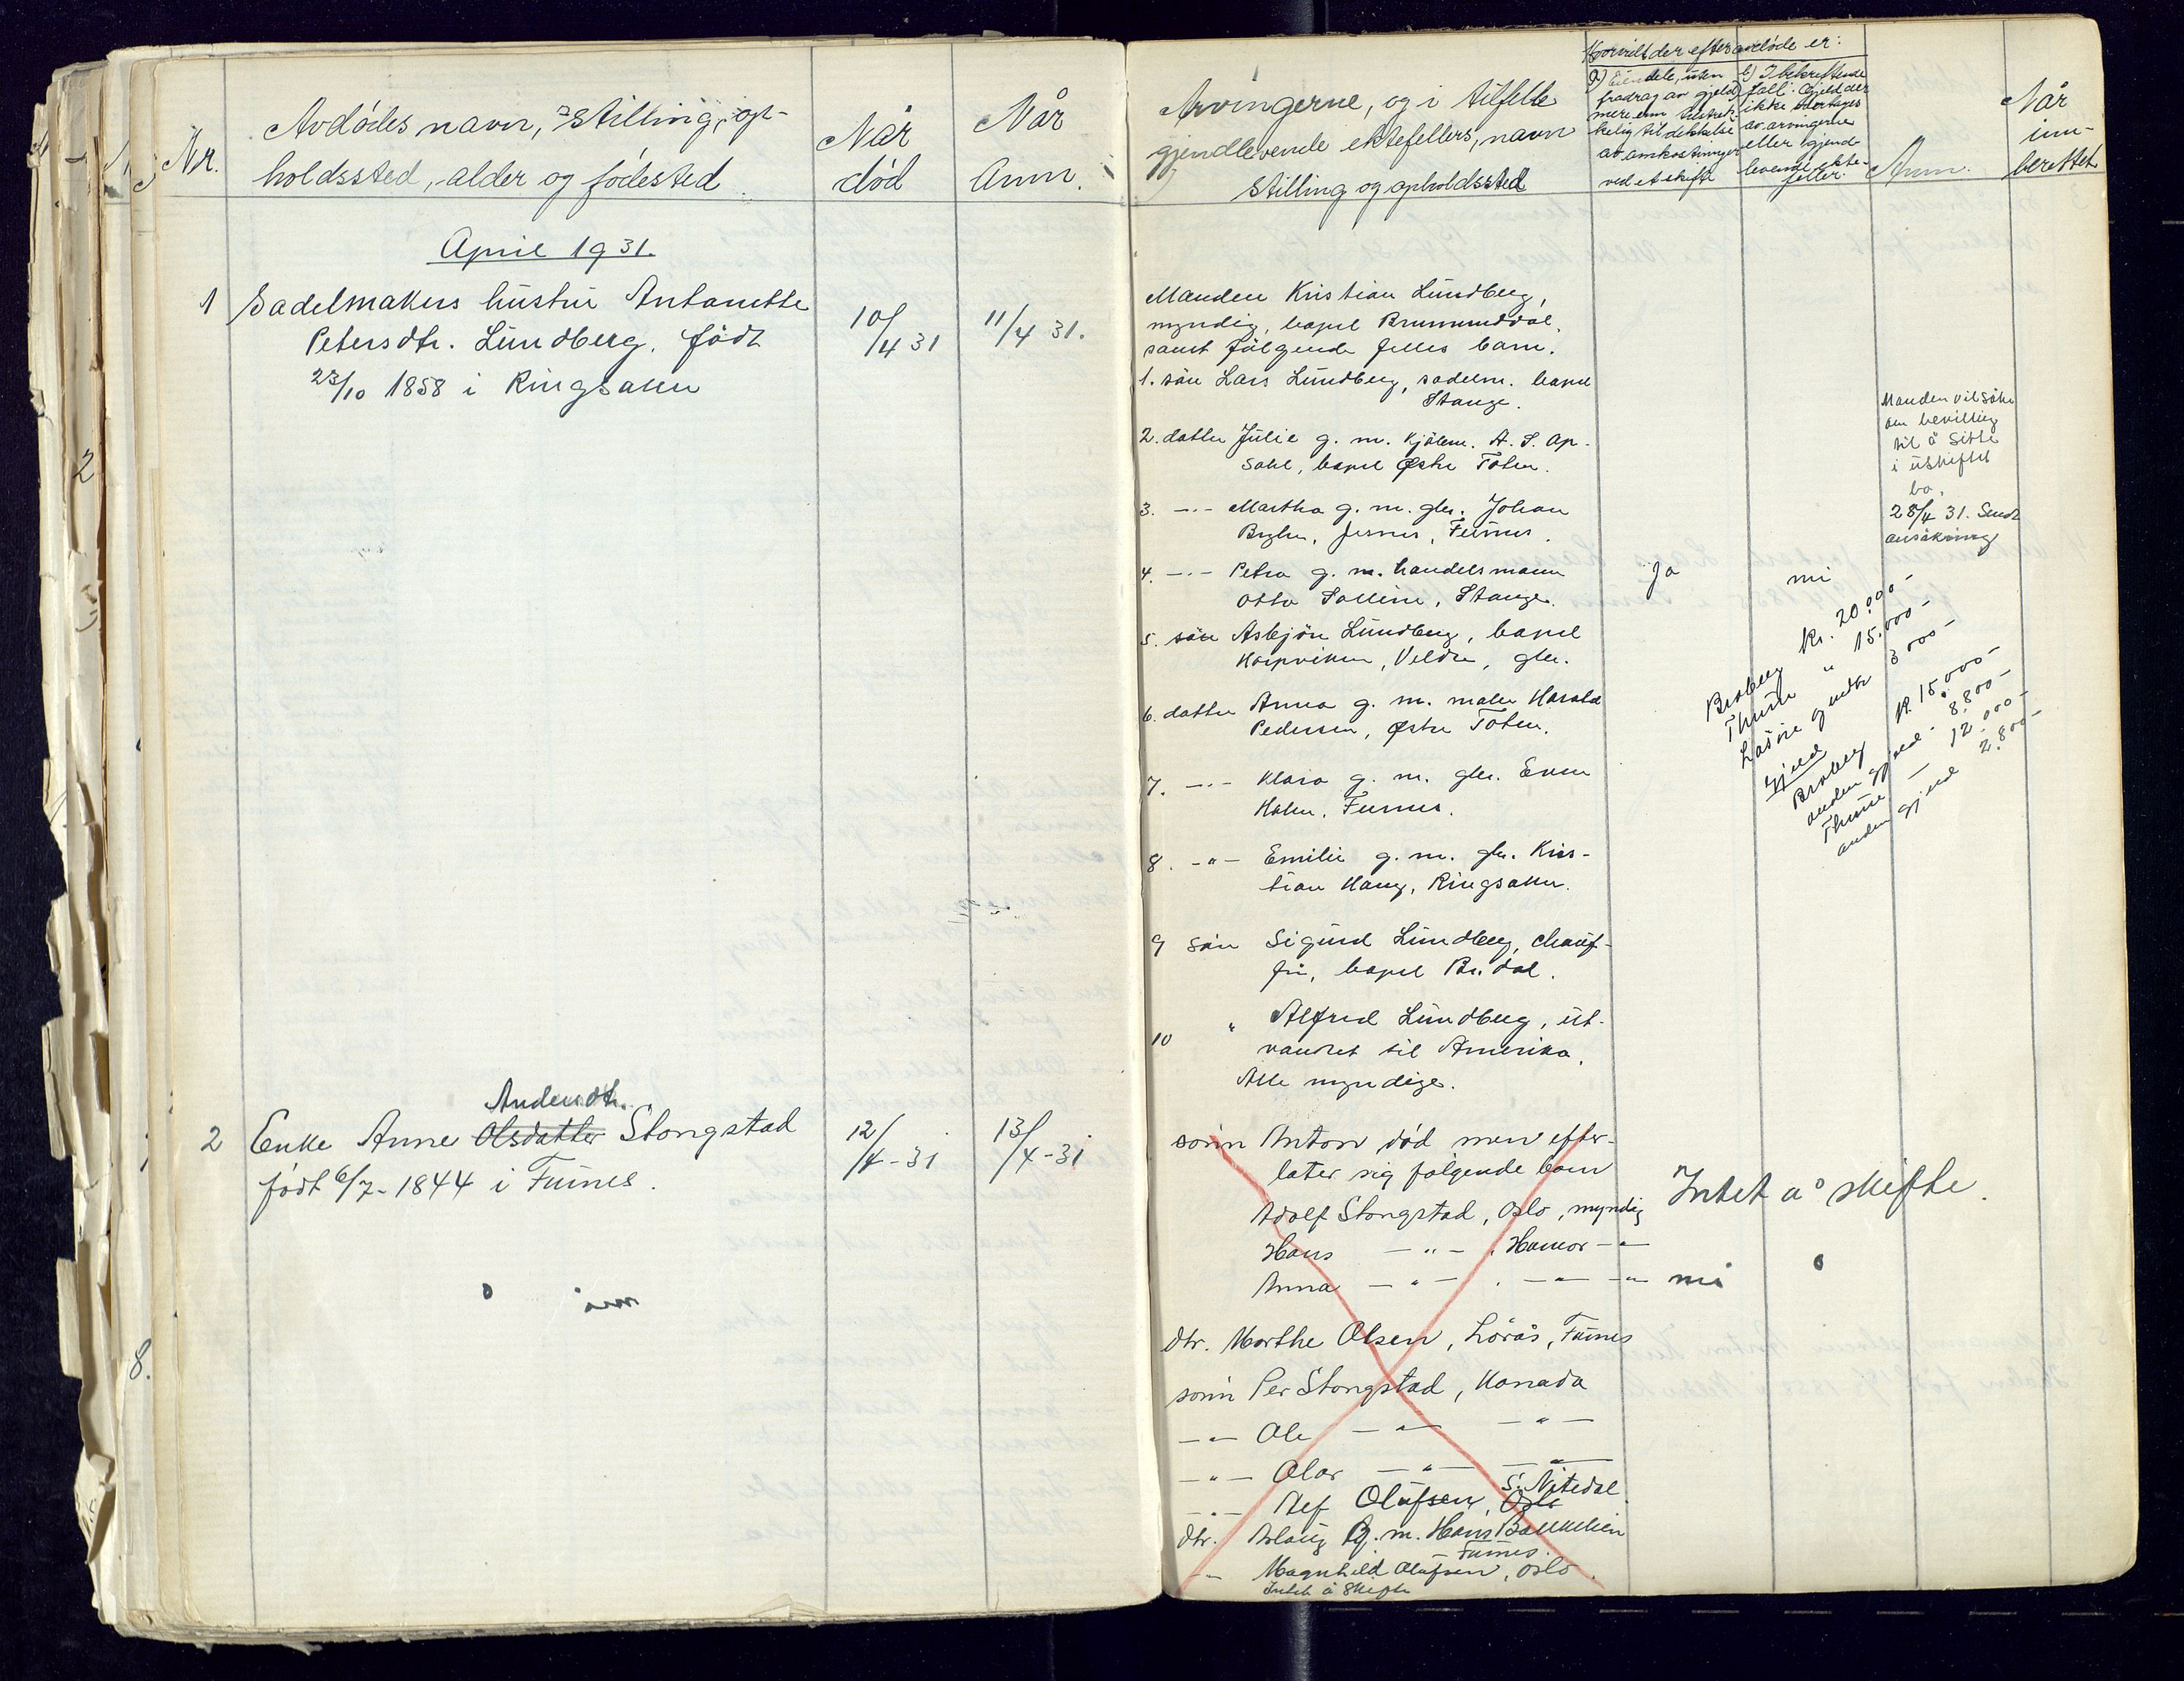 Nr.
Avdødes navn, stilling, op-
holdssted, alder og fødested
Når
død
Når
Anm.
April 1931.
1 Sadelmakers hustru Antonette
Petersdtr. Lundberg. født
23/10 1858 i Ringsaker
10/4 31
11/4 31.
2 Enke Anne Olsdatter Stongstad
Andersdtr.
født 6/7-1844 i Furnes.
12/4-31
13/4-31
2
8.
Arvingerne, og i tilfelle
gjenlevende ektefellers, navn
stilling og opholdssted
Hvorvidt der efter avdøde er:
a) Eiendele, uten
fradrag av gjeld
mere enn tilstrek-
kelig til dekkelse
av omkostninger
ved et skifte
b) I bekreftende
fall: Gjeld der
ikke overtages
av arvingerne
eller gjen-
levende ekte-
feller.
Anm.
Når
inn-
berettet
Manden Kristian Lundberg,
myndig, bopel Brummunddal,
samt følgende felles barn.
1. søn Lars Lundberg, sadelm. bopel
Stange.
2. datter Julie g. m. Kjølem. A. S. Op-
sahl, bopel Østre Toten.
3. -"- Martha g. m. gbr. Johan
Jesnes, Furnes.
4. -"- Petra g. m. handelsmann
Otto Stange.
5. søn Asbjørn Lundberg, bopel
Veldre, gbr.
6. datter Anna g. m. maler Harald
Pedersen, Østre Toten.
7. -"- Klara g. m. gbr. Even
Holm, Furnes.
8. -"- Emilie g. m. gbr. Kris-
tian Haug, Ringsaker.
9 søn Sigurd Lundberg, chauf-
før, bopel Br. dal.
10 " Alfred Lundberg, ut-
vandret til Amerika.
Alle myndige.
Ja
nei
Manden vil søke
om bevilling
til å sitte
i uskiftet
bo.
28/4 31. Sendt
ansøkning
Broberg kr. 20.000-
Thune " 15.000-
Løsøre 3000-
Gjeld
Broberg kr. 15.000-
anden gjeld 8.800-
Thune - 12.000-
anden gjeld 2.800-
sønn Anton død men efter-
later sig følgende barn
Adolf Stongstad, Oslo, myndig
Hans -"- , Hamar -"-
Anna -"- , -"- -"-
dtr. Marthe Olsen, Lørås, Furnes
sønn Per Stongstad, Kanada
-"- Ole -"- -"-
-"- Olav -"- -"-
-"- Alf Olufsen, Oslo
S. Nitedal.
dtr. Aslaug g. m. Hans Bakkelien
Furnes.
-"- Magnhild Olufsen, Oslo.
Intet å skifte
Intet å skifte.
nei